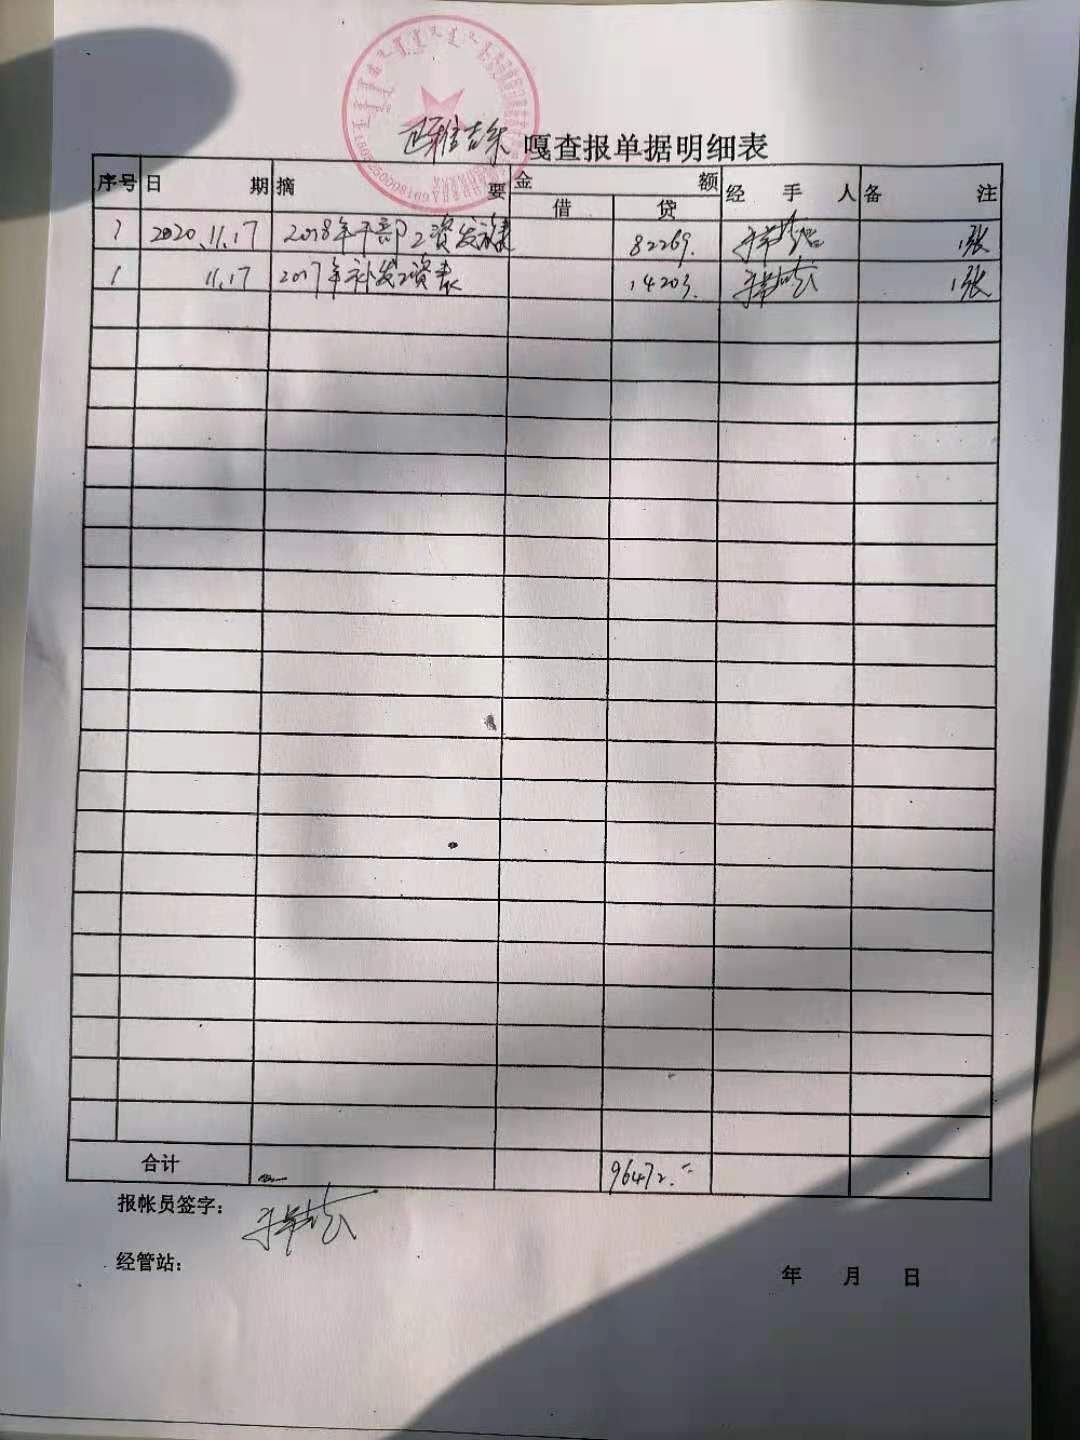 嘎查报单据明细表
序号 日期 摘要 金额 经手人 备注
借 贷
1 2020.11.17 2018年干部工资发放表 82269. 1张
1 11.17 2017年补发工资表 14203. 1张
合计 96472.
报帐员签字：
经管站：
年 月 日